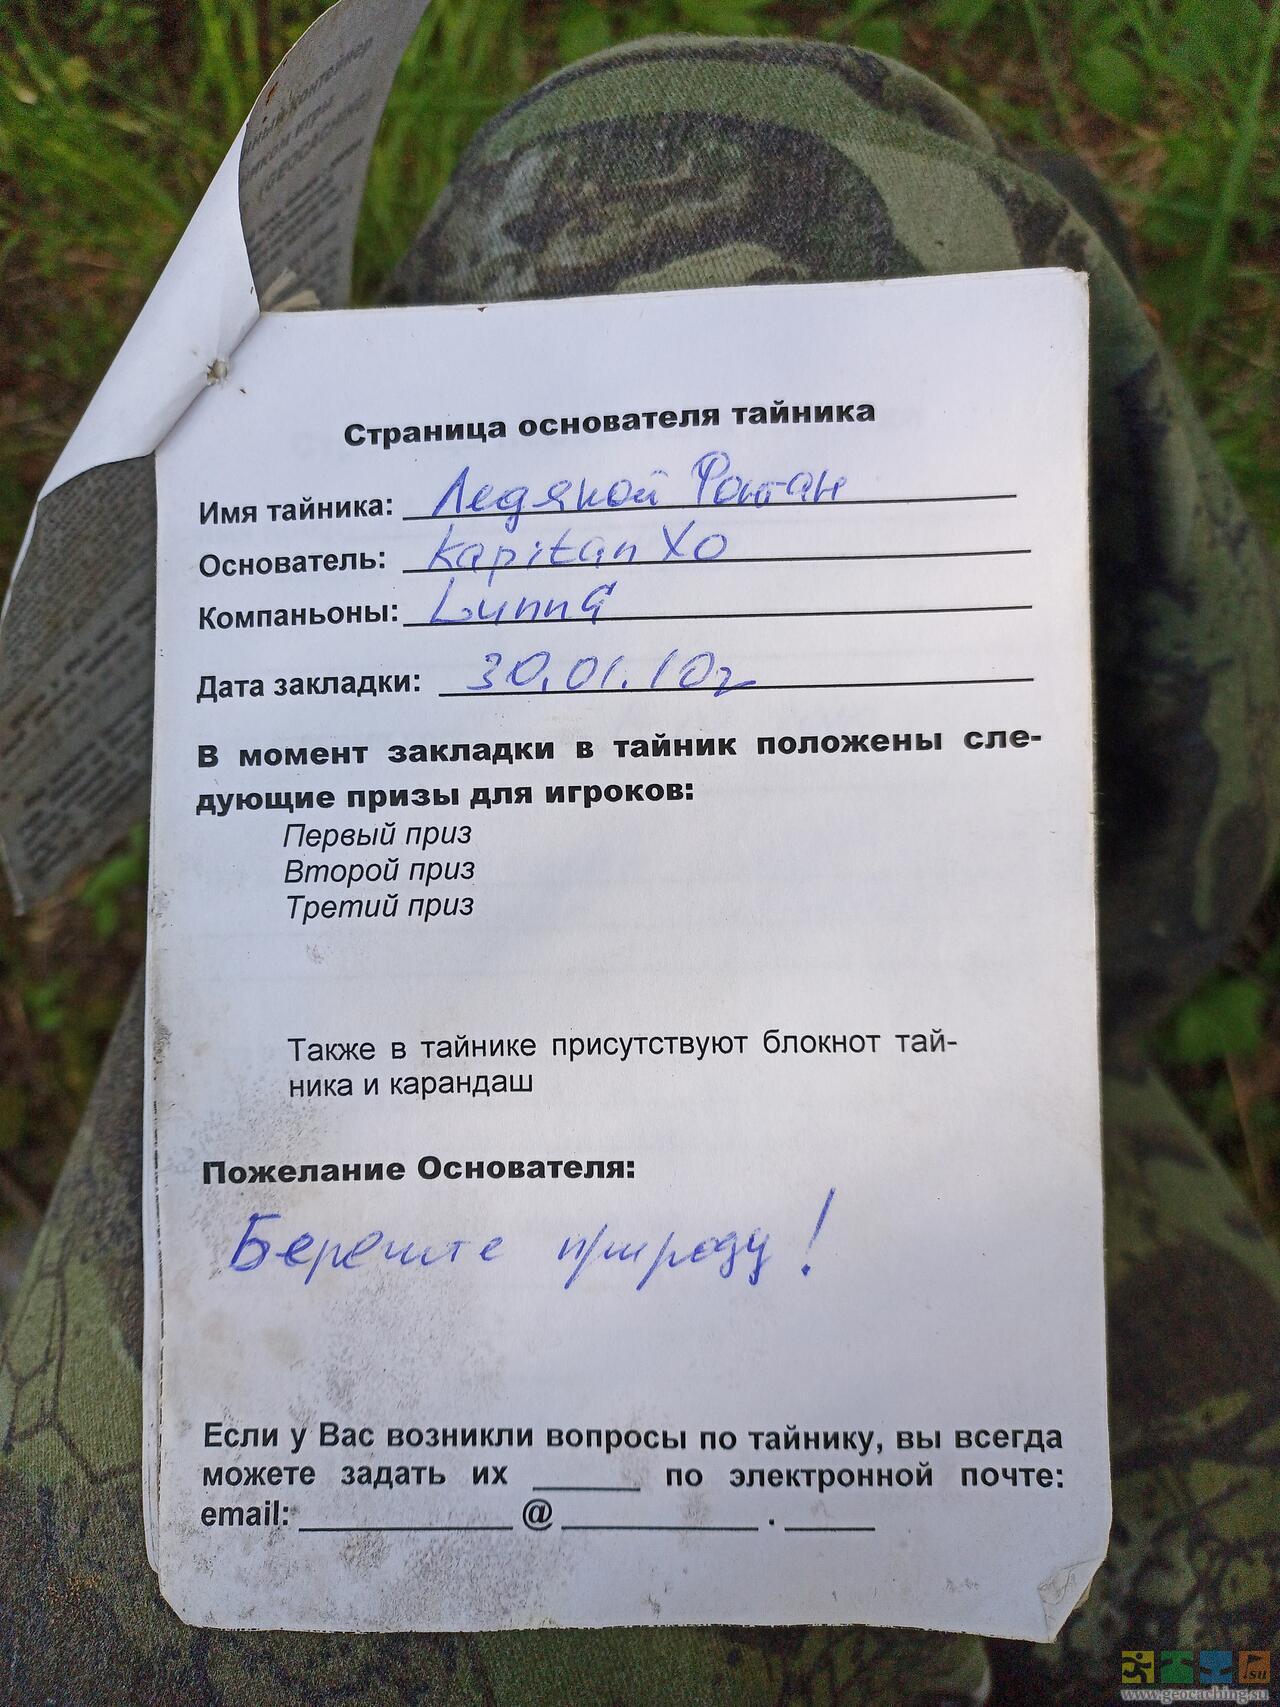 ный контейнер
Страница основателя тайника
Имя тайника: Ледяной Фонтан
Основатель: Kapitan XO
Компаньоны: Lunna
Дата закладки: 30.01.10г
В момент закладки в тайник положены сле-
дующие призы для игроков:
Первый приз
Второй приз
Третий приз
Также в тайнике присутствуют блокнот тай-
ника и карандаш
Пожелание Основателя:
Берегите природу!
Если у Вас возникли вопросы по тайнику, вы всегда
можете задать их ______ по электронной почте:
email: ____________ @ ___________ . _____
.su
www.geocaching.su